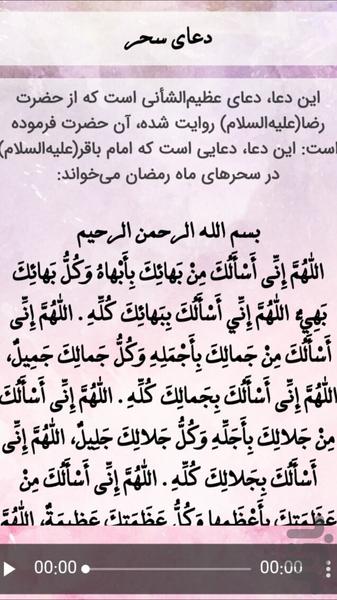 دعای سحر
این دعا، دعای عظیم‌الشأنی است که از حضرت
رضا(علیه‌السلام) روایت شده، آن حضرت فرموده
است: این دعا، دعایی است که امام باقر(علیه‌السلام)
در سحرهای ماه رمضان می‌خواند:
بسم الله الرحمن الرحیم
اللهُمَّ إِنِّی أَسْأَلُكَ مِنْ بَهائِكَ بِأَبْهاهُ وَكُلُّ بَهائِكَ
بَهِيٌّ اللهُمَّ إِنِّي أَسْأَلُكَ بِبَهائِكَ كُلِّهِ . اللهُمَّ إِنِّی
أَسْأَلُكَ مِنْ جَمالِكَ بِأَجْمَلِهِ وَكُلُّ جَمالِكَ جَمِيلٌ،
اللهُمَّ إِنِّی أَسْأَلُكَ بِجَمالِكَ كُلِّهِ . اللهُمَّ إِنِّی أَسْأَلُكَ
مِنْ جَلالِكَ بِأَجَلِّهِ وَكُلُّ جَلالِكَ جَلِيلٌ، اللهُمَّ إِنِّی
أَسْأَلُكَ بِجَلالِكَ كُلِّهِ . اللهُمَّ إِنِّی أَسْأَلُكَ مِنْ
عَظَمَتِكَ بِأَعْظَمِها وَكُلُّ عَظَمَتِكَ عَظِيمَةٌ، اللهُمَّ
00:00 00:00